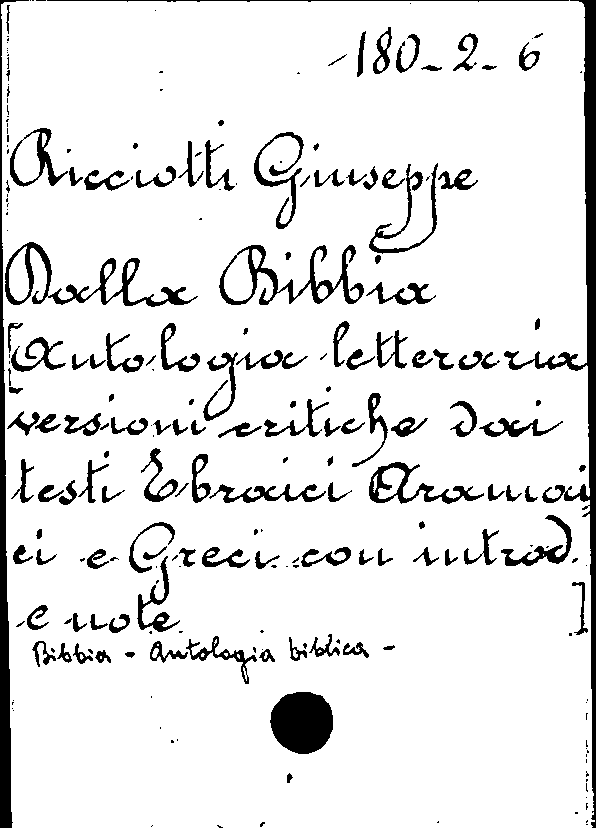 180-2-6
Ricciotti Giuseppe
Dalla Bibbia
[Antologia letteraria
versioni critiche dai
testi Ebraici Aramai=
ci e Greci con introd.
e note ]
Bibbia - Antologia biblica -